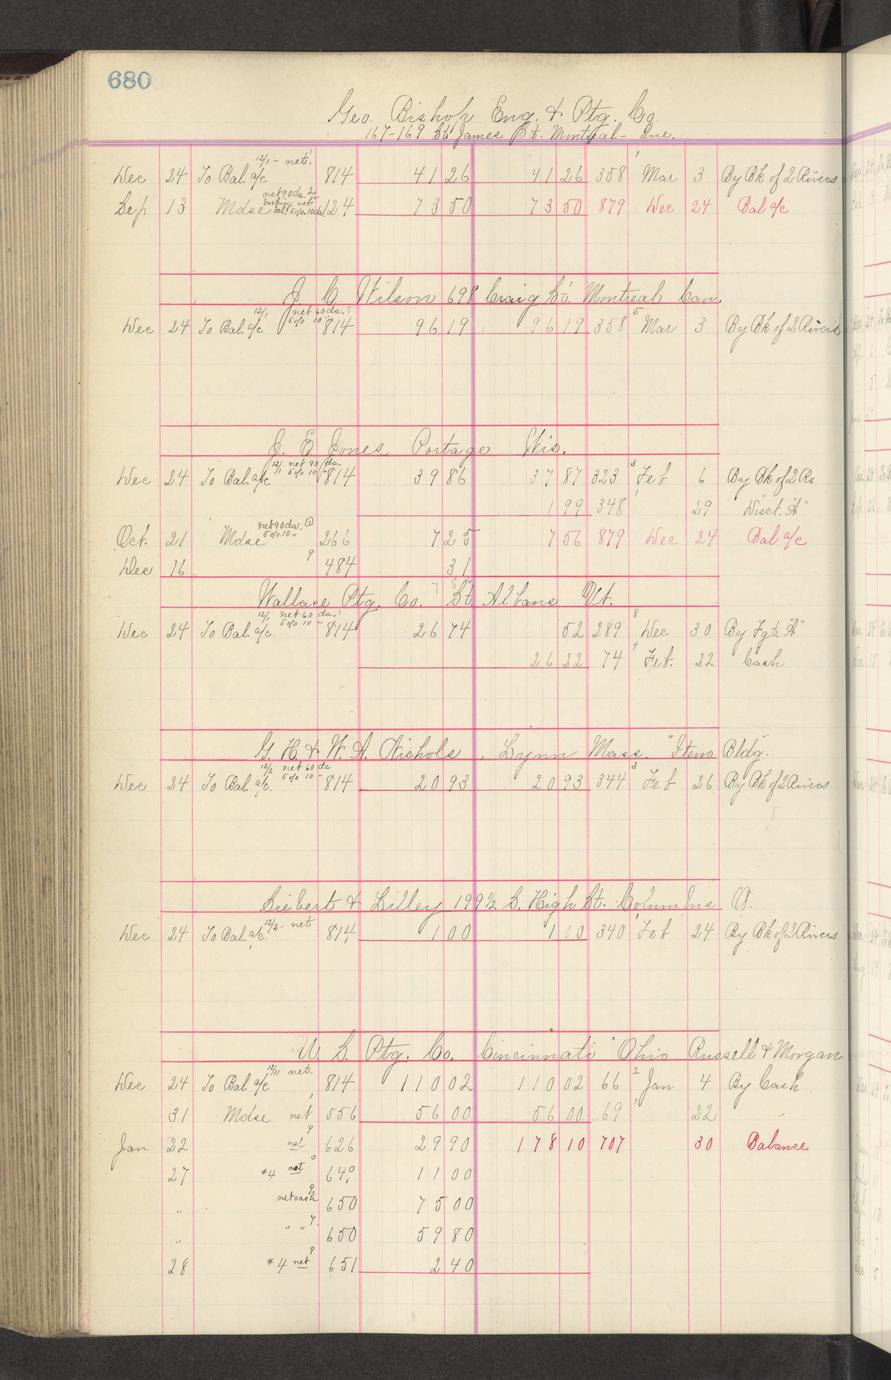 680
Geo. Bishop Eng. & Ptg. Co.
167-169 St. James St. Montreal - Que.
12/1 - net.
Dec 24 To Bal. a/c 814 41 26 41 26 358 Mar 3 By Bk of 2 Rivers
Sep 13 Mdse 124 73 50 73 50 879 Dec 24 Bal a/c
J. C. Wilson 698 Craig St. Montreal Can.
12/1 net 60 da. 5% 10 "
Dec 24 To Bal. a/c 814 96 19 96 19 358 Mar 3 By Bk of 2 Rivers
J. E. Jones Portage Wis.
net 90 da. 5% 10 "
Dec 24 To Bal. a/c 814 39 86 37 87 323 Feb 6 By Bk of 2 Rs
1 99 348 29 Disct. "A"
net 90 da. 5% 10 "
Oct. 21 Mdse 266 7 25 7 56 879 Dec 24 Bal a/c
Dec 16 484 31
Wallace Ptg. Co. St. Albans Vt.
12/1 net 60 da. 5% 10 "
Dec 24 To Bal. a/c. 814 26 74 52 289 Dec 30 By Fgt. "A"
26 22 74 Feb. 22 Cash
G. H. & W. A. Nichols, Lynn Mass. "Item Bldg."
12/2 net 60 da 5% 10 "
Dec 24 To Bal a/c. 814 20 93 20 93 344 Feb 26 By Bk of 2 Rivers
Siebert & Lilley 199½ S. High St. Columbus O.
12/2 - net
Dec 24 To Bal. a/c. 814 1 00 1 00 340 Feb 24 By Bk of 2 Rivers
U. S. Ptg. Co. Cincinnati Ohio Russell & Morgan
net.
Dec 24 To Bal a/c 814 110 02 110 02 66 Jan 4 By Cash
31 Mdse net 556 56 00 56 00 69 22 "
Jan 22 net 626 29 90 178 10 707 30 Balance
27 #4 net 640 11 00
" net cash 650 75 00
" " " 650 59 80
28 #4 net 651 2 40